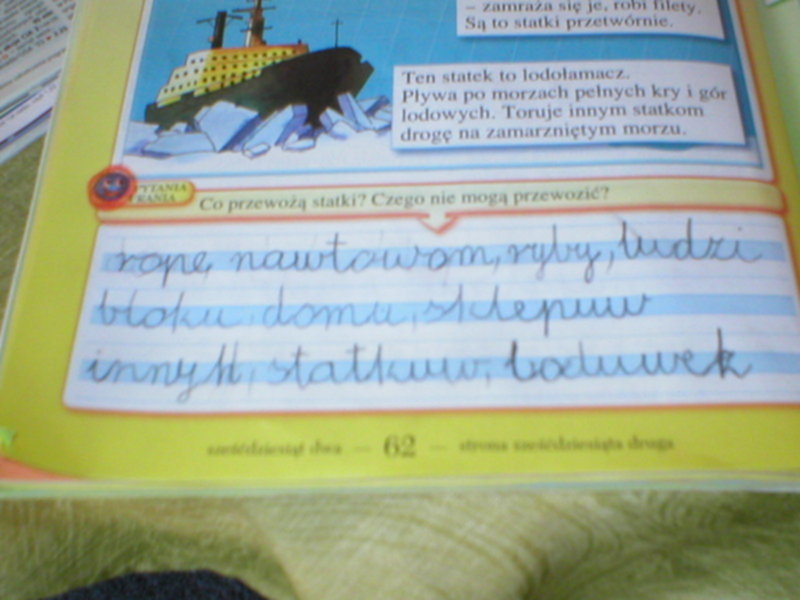 – zamraża się je, robi filety.
Są to statki przetwórnie.
Ten statek to lodołamacz.
Pływa po morzach pełnych kry i gór
lodowych. Toruje innym statkom
drogę na zamarzniętym morzu.
PYTANIA
Co przewożą statki? Czego nie mogą przewozić?
ropę nawtowom, ryby, ludzi
bloku, domu, sklepuw
innyh, statkuw, loduwek
sześćdziesiąt dwa — 62 — strona sześćdziesiąta druga